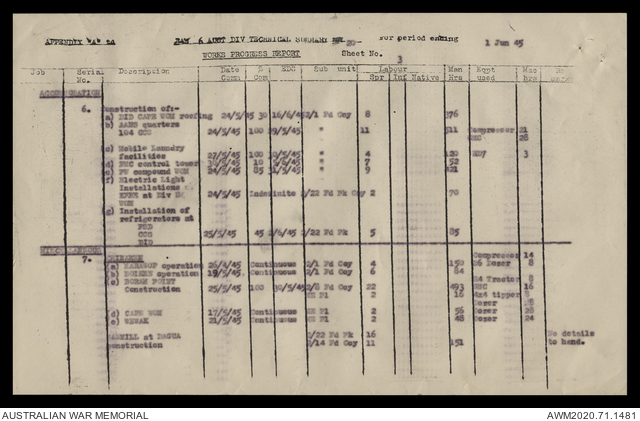 APPENDIX "A" to RAE 6 AUST DIV TECHNICAL SUMMARY No. 20 For period ending 1 Jun 45
WORKS PROGRESS REPORT Sheet No. 3
Job Serial No. Description Date Comm % Com EDC Sub unit Labour Spr Inf Native Man Hrs Eqpt used Mac hrs
ACCOMMODATION
6. Construction of:-
a) BID CAPE WOM roofing 24/5/45 30 16/6/45 2/1 Fd Coy 8 376
b) AANS quarters
104 CCS 24/5/45 100 29/5/45 " 11 511 Compressor 21
28
c) Mobile Laundry
facilities 27/5/45 100 " 4 120 HD7 3
d) control tower " 7 52
e) PW compound WOM 24/5/45 85 " 9 421
f) Electric Light
Installations
at Div
WOM 24/5/45 Indefinite 2/22 Fd Pk Coy 2 70
g) Installation of
refrigerators at
FSD
CCS 25/5/45 45 2/6/45 2/22 Fd Pk 5 85
BID
MISCELLANEOUS
7.
(a) operation 26/4/45 Continuous 2/1 Fd Coy 4 150 Compressor 14
Dozer 8
(b) operation 19/5/45 Continuous 2/1 Fd Coy 6 84
(c) BORAM POINT Tractor 8
Construction 25/5/45 100 30/5/45 2/8 Fd Coy 22 493 16
ME Pl 2 16 4x4 tipper 8
Dozer
(d) CAPE WOM 17/5/45 Continuous ME Pl 2 56 Dozer 28
(e) WEWAK 21/5/45 Continuous ME Pl 2 48 Dozer 24
2/22 Fd Pk 16
SAWMILL at DAGUA No details
construction 2/14 Fd Coy 11 151 to hand.
AUSTRALIAN WAR MEMORIAL AWM2020.71.1481